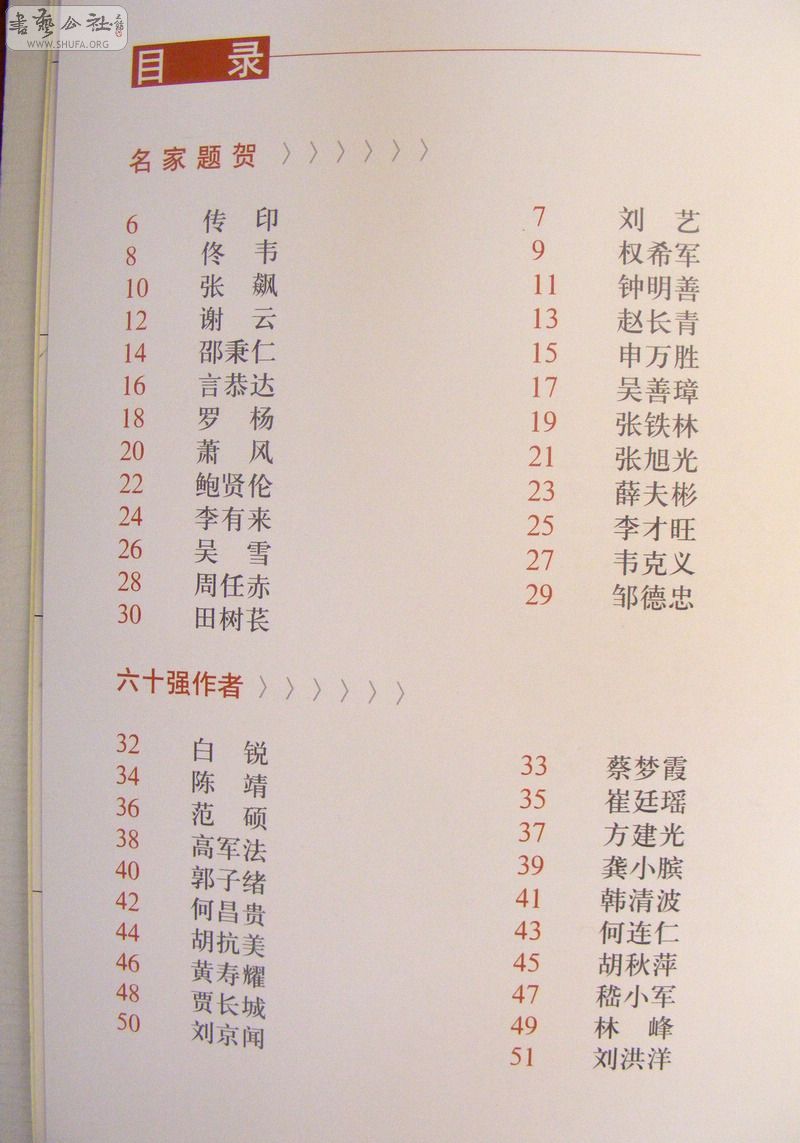 書藝公社
WWW.SHUFA.ORG
目 录
名家题贺 〉〉〉〉〉〉
6 传 印 7 刘 艺
8 佟 韦 9 权希军
10 张 飙 11 钟明善
12 谢 云 13 赵长青
14 邵秉仁 15 申万胜
16 言恭达 17 吴善璋
18 罗 杨 19 张铁林
20 萧 风 21 张旭光
22 鲍贤伦 23 薛夫彬
24 李有来 25 李才旺
26 吴 雪 27 韦克义
28 周任赤 29 邹德忠
30 田树苌
六十强作者 〉〉〉〉〉〉
32 白 锐 33 蔡梦霞
34 陈 靖 35 崔廷瑶
36 范 硕 37 方建光
38 高军法 39 龚小膑
40 郭子绪 41 韩清波
42 何昌贵 43 何连仁
44 胡抗美 45 胡秋萍
46 黄寿耀 47 嵇小军
48 贾长城 49 林 峰
50 刘京闻 51 刘洪洋